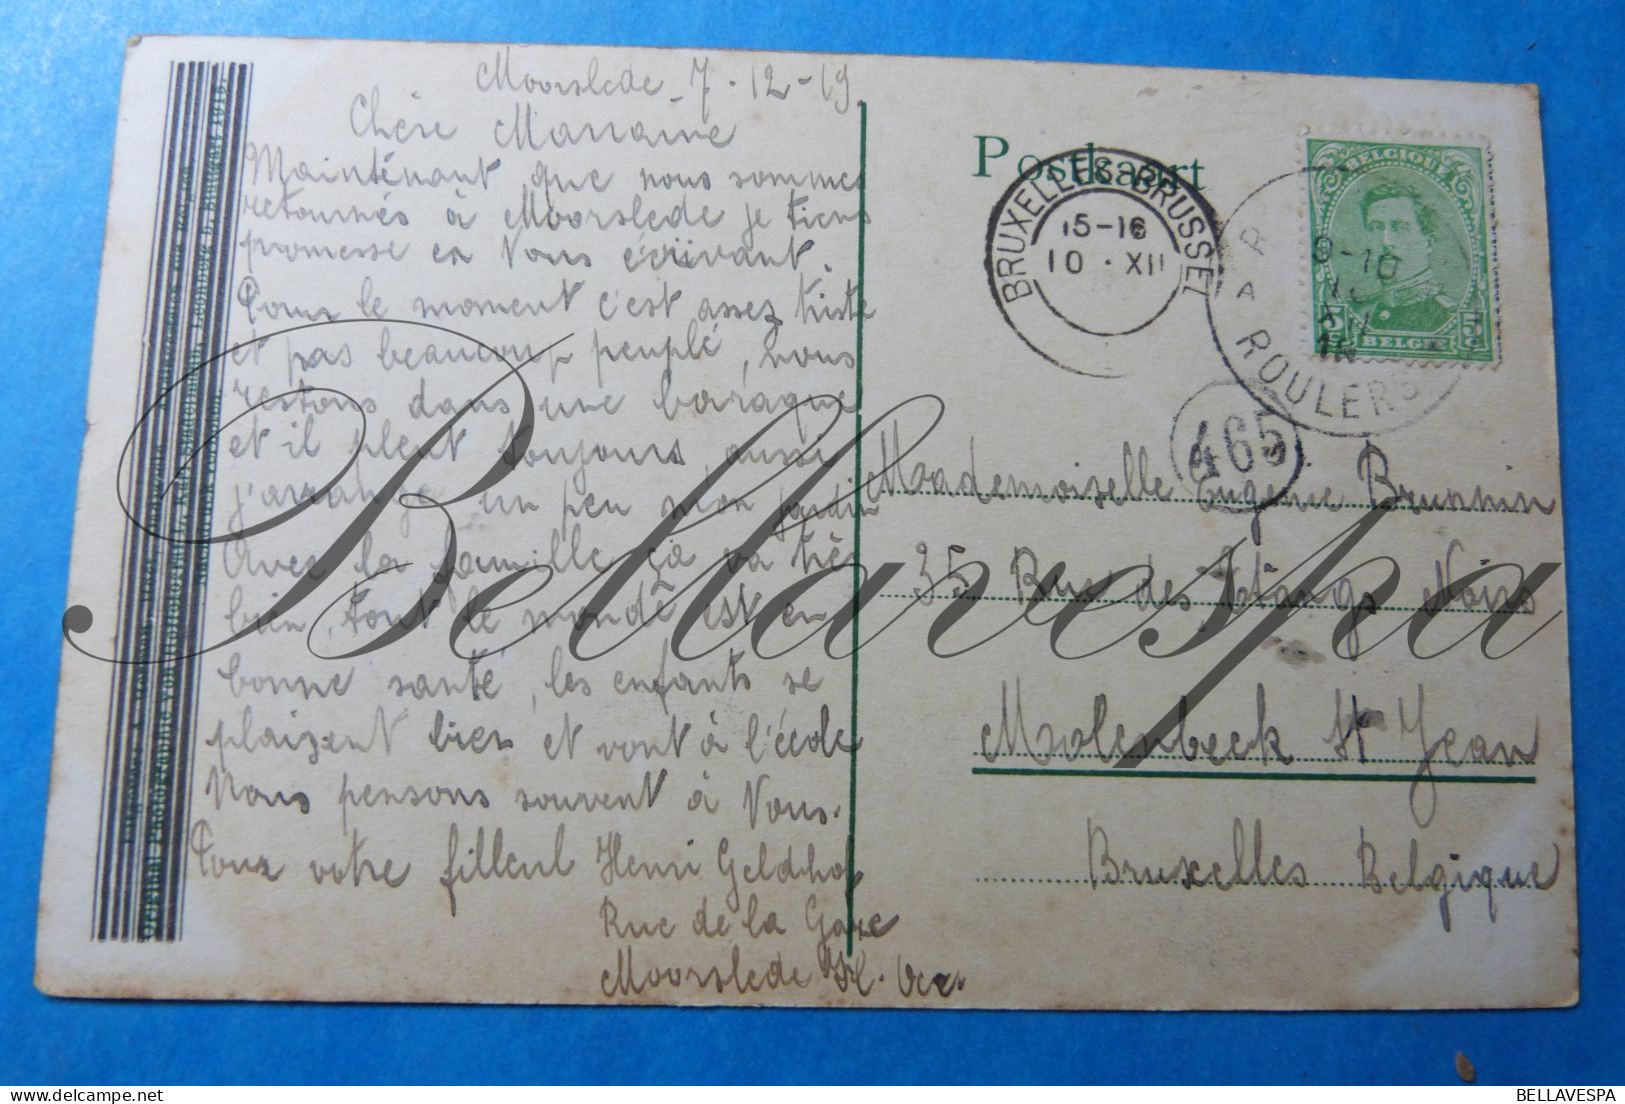 Moorslede 7-12-19
Chère Marraine
Mainténant que nous sommes
retournés à Moorslede je tiens
promesse en Vous écrivant.
Pour le moment c'est assez triste
et pas beaucoup peuplé, nous
restons dans une baraque
et il pleut toujours, aussi
j'arrange un peu mon jardin
Avec la famille ça va très
bien, tout le monde est en
bonne santé, les enfants se
plaizent bien et vont à l'école
Nous pensons souvent à Vous.
Pour votre filleul Henri Geldhof
Rue de la Gare
Moorslede
Postkaart
BRUXELLES-BRUSSEL
15-16
10 · XII
BELGIQUE
5 5
BELGIË
9-10
XII
A ROULERS
465
Mademoiselle Eugenie Brunnin
35 Rue des Etangs Noirs
Molenbeek St Jean
Bruxelles Belgique
Bellavespa
BELLAVESPA